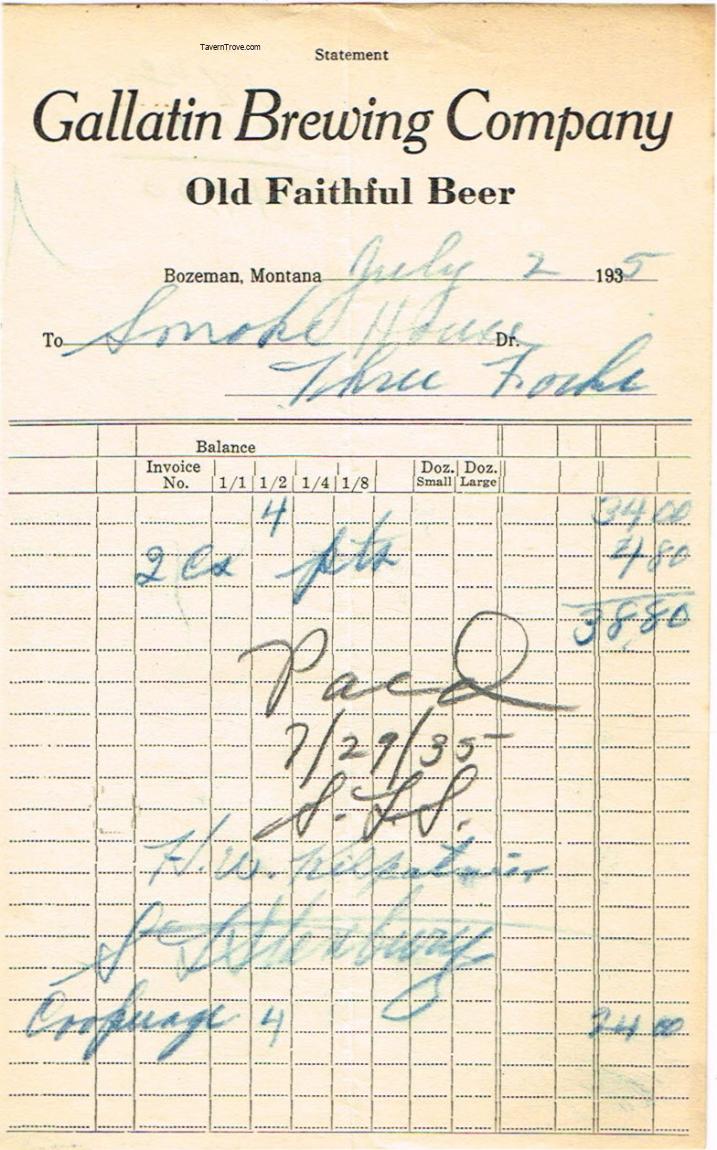 TavernTrove.com
Statement
Gallatin Brewing Company
Old Faithful Beer
Bozeman, Montana July 2 1935
To Smoke House Dr.
Three Forks
Balance
Invoice No. 1/1 1/2 1/4 1/8 Doz. Small Doz. Large
4 34 00
2 Cs pts 4 80
38.80
Paid
7/29/35
S.F.S.
H.W. Kilpatrick
S
Cooperage 4 24 00